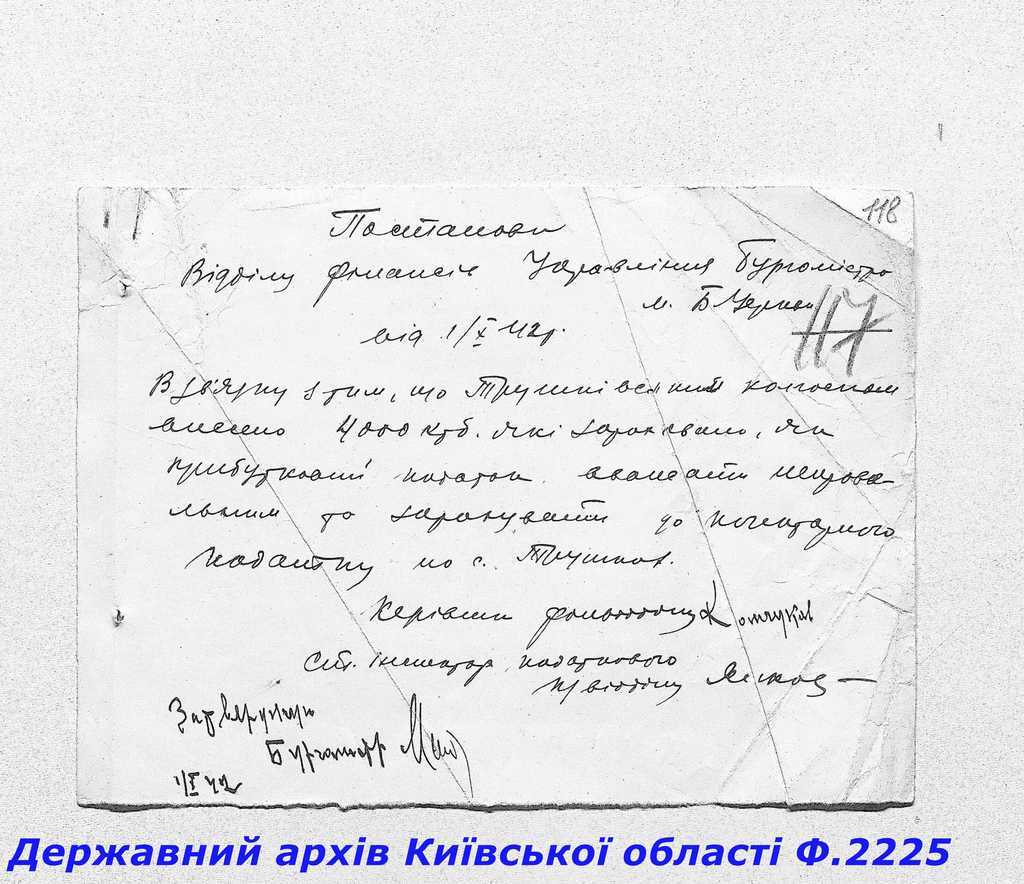 118
Постанова
Відділу фінансів Управління Бургомістра
м. Б Церкви
117
від 1/X 42 р.
В зв'язку з тим, що Трушківським колгоспом
внесено 4000 крб. які зараховано, як
прибутковий податок вважати неправи-
льним та зарахувати до подушного
податку по с. Трушках.
Керівник фінвідділу
Ст. Інспектор податкового
п/відділу
Затверджую
Бургомістр
1/X 42
Державний архів Київської області Ф.2225